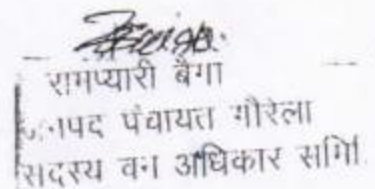 रामप्यारी बैगा
जनपद पंचायत गौरेला
सदस्य वन अधिकार समिि